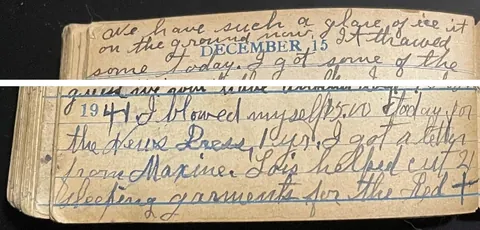 We have such a glare of ice it
on the ground now. It thawed
DECEMBER 15
some today. I got some of the
guess we
1941. I blowed myself 15.00 today for
the News Press, 1 yr. I got a letter
from Maxine. Lois helped cut 21
sleeping garments for the Red +